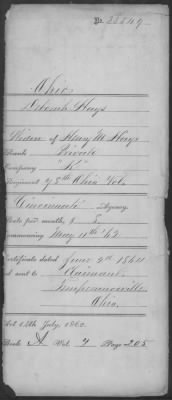 No. 28849
Ohio
Deborah Hays
Widow of Henry M. Hays
Rank Private
Company "K"
Regiment 78th Ohio Vols
Cincinnati Agency
Rate per month, $ 8
commencing May 11th '62
Certificate dated June 9th 1864
sent to Claimant
Temperanceville
Ohio.
Act 14th July, 1862.
Book A Vol. 2 Page 205